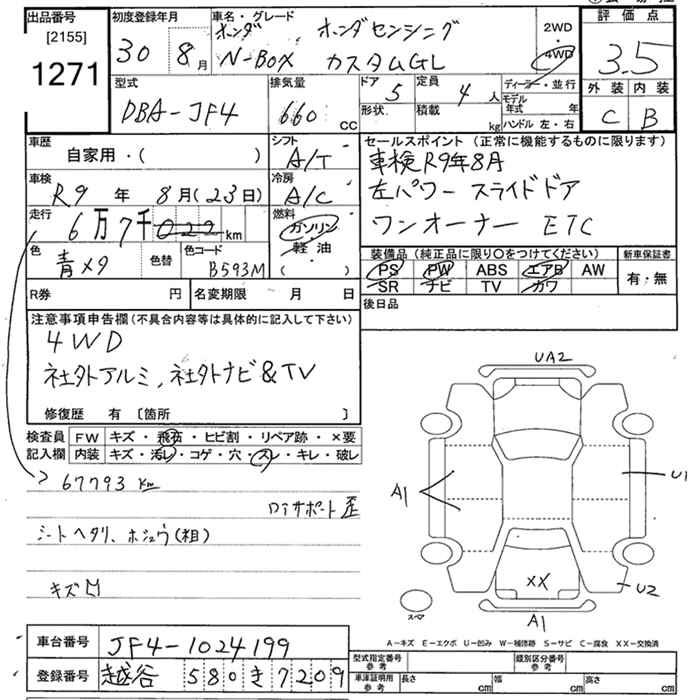 出品番号 [2155] 1271
初度登録年月 30 8月
車名・グレード ホンダ ホンダセンシング
N-BOX カスタムGL
2WD・4WD
評価点 3.5
外装 内装
C B
型式 DBA-JF4
排気量 660 CC
ドア 5 定員 4人
形状 積載 kg
ディーラー・並行
モデル年式 年
ハンドル 左・右
車歴 自家用・( )
シフト A/T
車検 R9年8月(23日)
冷房 A/C
走行 6万7千022km
燃料 ガソリン
軽油
( )
色 青メ9 色替 色コード B593M
R券 円 名変期限 月 日
セールスポイント(正常に機能するものに限ります)
車検R9年8月
左パワースライドドア
ワンオーナー ETC
装備品(純正品に限り○をつけてください)
PS PW ABS エアB AW
SR ナビ TV カワ
新車保証書
有・無
後日品
注意事項申告欄(不具合内容等は具体的に記入して下さい)
4WD
社外アルミ、社外ナビ&TV
修復歴 有 〔箇所 〕
検査員記入欄 FW キズ・飛石・ヒビ割・リペア跡・×要
内装 キズ・汚レ・コゲ・穴・スレ・キレ・破レ
67793km
コアサポート歪
シートヘタリ、ホシュウ(粗)
キズ凹
UA2
A1
U1
XX
U2
A1
スペア
A-キズ E-エクボ U-凹み W-補修跡 S-サビ C-腐食 XX-交換済
車台番号 JF4-1024199
登録番号 越谷 580 き 7209
型式指定番号 参考 類別区分番号 参考
車庫証明用 参考 長さ cm 幅 cm 高さ cm